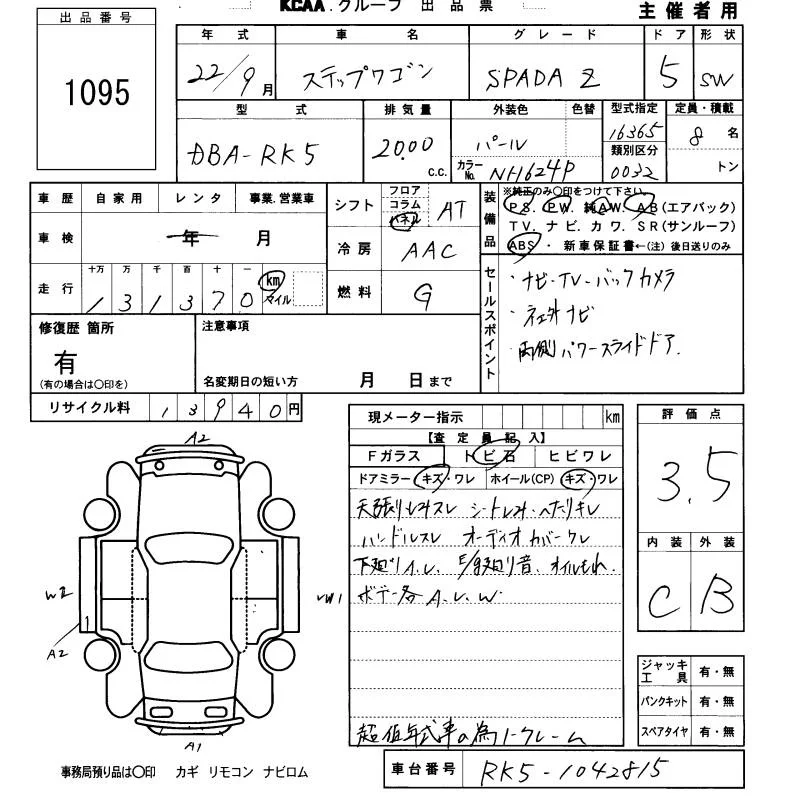 KCAA.グループ 出品票 主催者用
出品番号
1095
年式 車名 グレード ドア 形状
22/9月 ステップワゴン SPADA Z 5 SW
型式 排気量 外装色 色替 型式指定 定員・積載
DBA-RK5 2000 C.C. パール 16365 8名
カラーNo. NH624P 類別区分 0032 トン
車歴 自家用 レンタ 事業.営業車
車検 年 月
走行 十万 万 千 百 十 一
131370 km マイル
シフト フロア コラム パネル AT
冷房 AAC
燃料 G
装備品 ※純正のみ〇印をつけて下さい。
PS. PW. 純AW. AB(エアバック)
TV. ナビ. カワ. SR(サンルーフ)
ABS・新車保証書←(注)後日送りのみ
セールスポイント
・ナビ・TV・バックカメラ
・社外ナビ
・両側パワースライドドア.
修復歴 箇所
有
(有の場合は〇印を)
注意事項
名変期日の短い方 月 日まで
リサイクル料 13940円
現メーター指示 km
【査定員記入】
Fガラス トビ石 ヒビワレ
ドアミラー キズ・ワレ ホイール(CP) キズ・ワレ
天張りシミスレ シートシミ・ヘタリキレ
ハンドルスレ オーディオカバークレ
下廻りA.U. E/g廻り音、オイルもれ.
ボデー各A.U.W.
超低年式車の為ノークレーム
評価点
3.5
内装 外装
C B
ジャッキ工具 有・無
パンクキット 有・無
スペアタイヤ 有・無
A2
W2
A2
W1
A1
事務局預り品は〇印 カギ リモコン ナビロム
車台番号 RK5-1042815